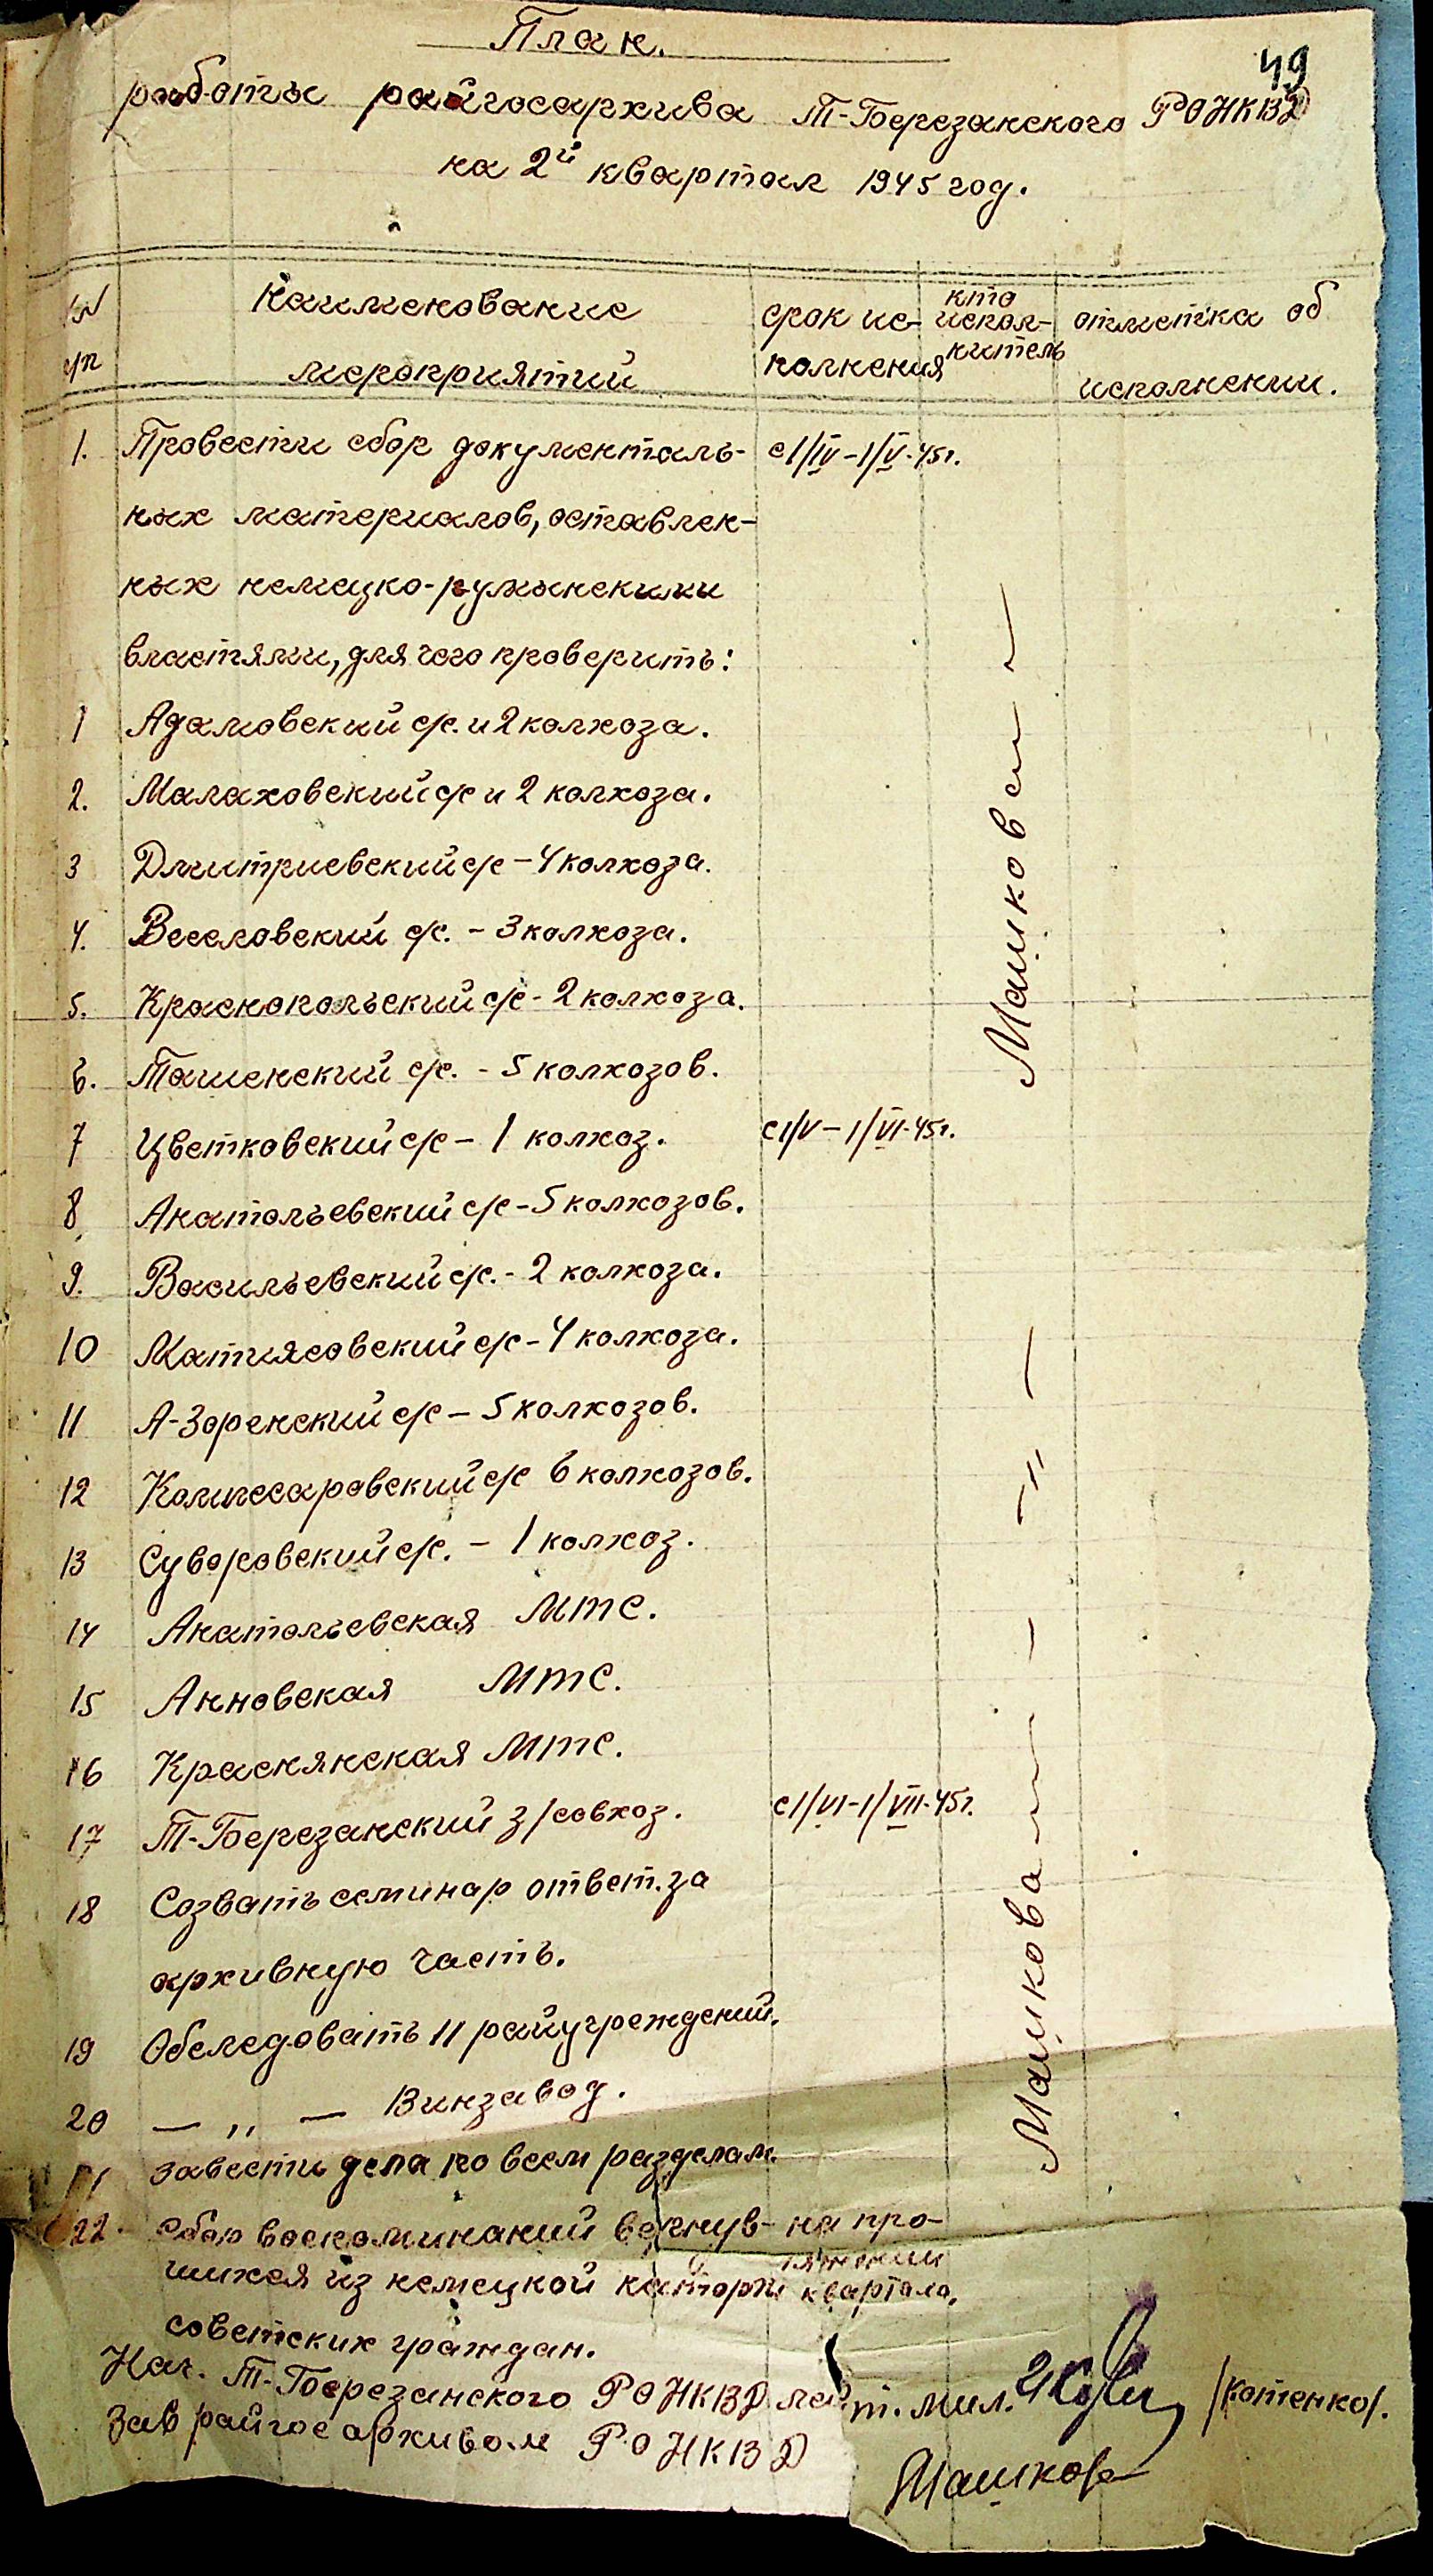 49
План.
работы райгосархива Т-Березанского РОНКВД
на 2й квартал 1945 год.
№ Наименование срок ис- кто испол- отметка об
п/п мероприятий полнения нитель исполнении.
1. Провести сбор документаль- с 1/IV – 1/V-45г.
ных материалов, оставлен-
ных немецко-румынскими
властями, для чего проверить:
1 Адамовский с/с. и 2 колхоза. Машкова
2. Малаховский с/с и 2 колхоза.
3 Дмитриевский с/с – 4 колхоза.
4. Веселовский с/с. – 3 колхоза.
5. Краснопольский с/с - 2 колхоза.
6. Ташенский с/с. - 5 колхозов.
7 Цветковский с/с – 1 колхоз. с 1/V – 1/VI-45г.
8 Анатольевский с/с – 5 колхозов.
9. Васильевский с/с. - 2 колхоза.
10 Матиясовский с/с – 4 колхоза.
11 А-Зоренский с/с – 5 колхозов. – " –
12 Комиссаровский с/с 6 колхозов.
13 Суворовский с/с. – 1 колхоз.
14 Анатольевская МТС.
15 Анновская МТС.
16 Краснянская МТС.
17 Т-Березанский з/совхоз. с 1/VI-1/VII-45г.
18 Созвать семинар ответ. за Машкова
архивную часть.
19 Обследовать 11 райучреждений.
20 — „ — Винзавод.
21 Завести дела по всем разделам.
22. Сбор воспоминаний вернув- на про-
шихся из немецкой каторги тяжении квартала.
советских граждан.
Нач. Т-Березанского РОНКВД лей-т. мил. /Котенко/.
Зав райгосархивом РОНКВД Машкова